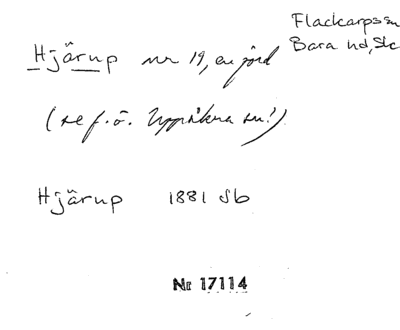 Flackarps sn
Bara hd, Sk
Hjärup nr 19, en jord
(se f. ö. Uppåkra sn!)
Hjärup 1881 Jb
Nr 17114